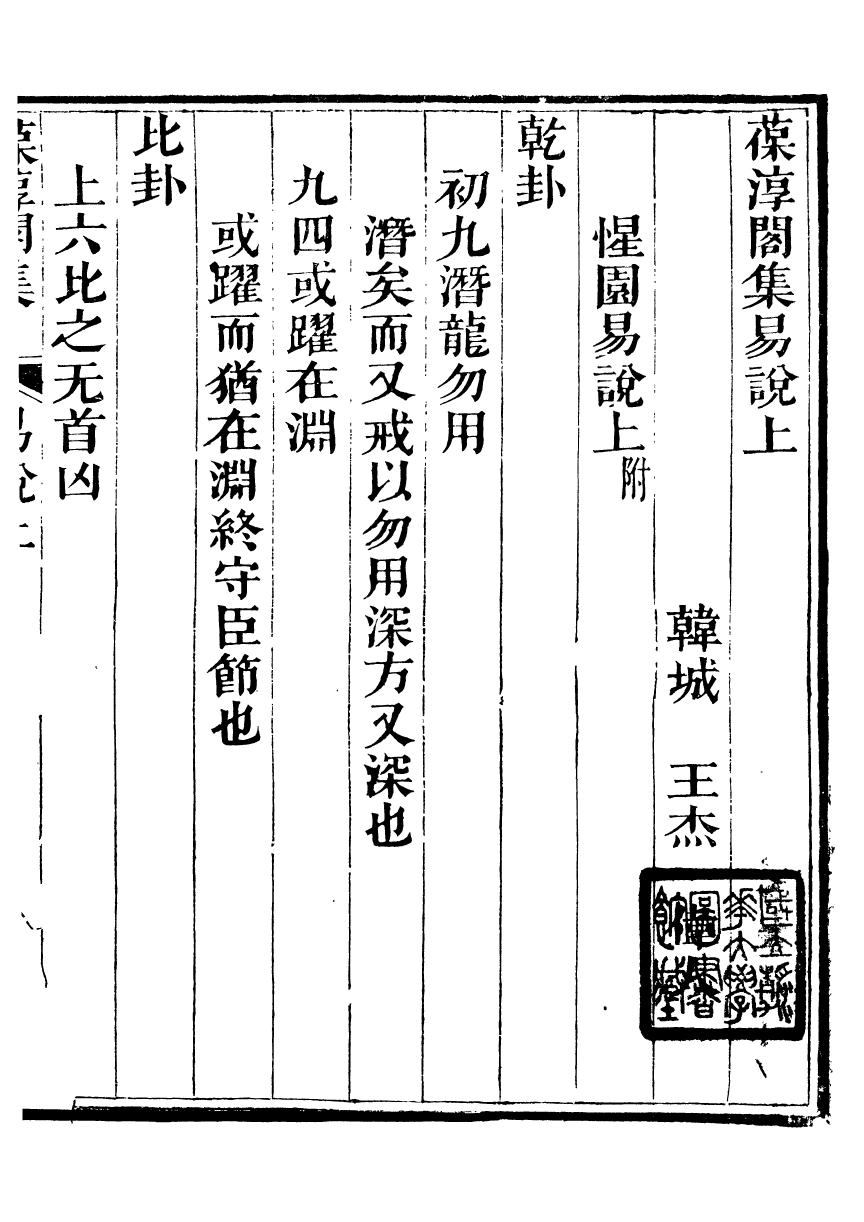 葆淳閣集易說上
韓城　王杰
惺園易說上附
乾卦
初九潛龍勿用
潛矣而又戒以勿用深方又深也
九四或躍在淵
或躍而猶在淵終守臣節也
比卦
上六比之无首凶
葆淳閣集　易說上
國立清華大學圖書館藏